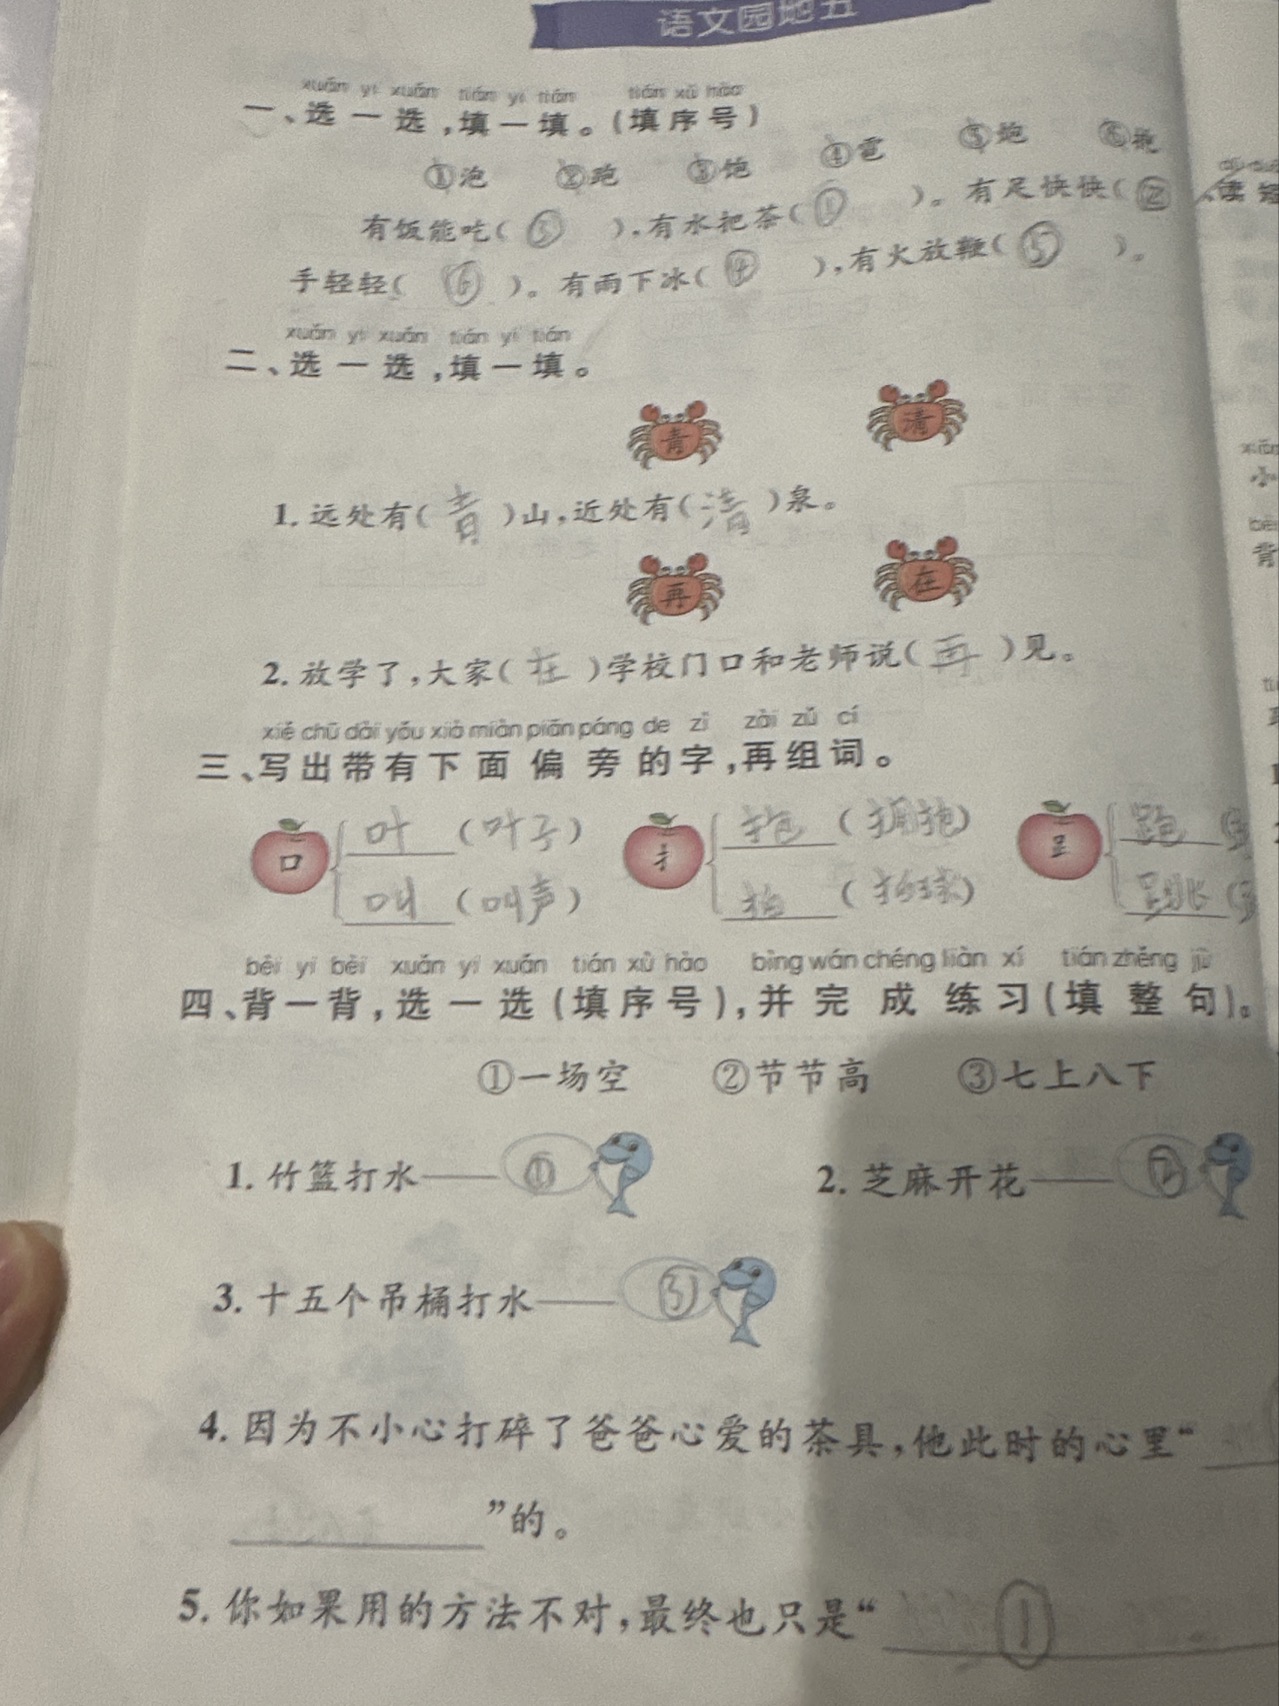 语文园地五
xuǎn yi xuǎn tián yi tián tián xù hào
一、选一选,填一填。(填序号)
①泡 ②跑 ③饱 ④雹 ⑤炮 ⑥抱
有饭能吃( ③ ),有水把茶( ① )。有足快快( ②
手轻轻( ⑥ )。有雨下冰( ④ ),有火放鞭( ⑤ )。
xuǎn yi xuǎn tián yi tián
二、选一选,填一填。
青 清
1. 远处有( 青 )山,近处有( 清 )泉。
再 在
2. 放学了,大家( 在 )学校门口和老师说( 再 )见。
xiě chū dài yǒu xià miàn piān páng de zì zài zǔ cí
三、写出带有下面偏旁的字,再组词。
口 叶 (叶子) 扌 抱 (拥抱) 𧾷 跑
叫 (叫声) 拍 (拍球) 跳
bèi yi bèi xuǎn yi xuǎn tián xù hào bìng wán chéng liàn xí tián zhěng jù
四、背一背,选一选(填序号),并完成练习(填整句)。
①一场空 ②节节高 ③七上八下
1. 竹篮打水—— ① 2. 芝麻开花—— ②
3. 十五个吊桶打水—— ③
4. 因为不小心打碎了爸爸心爱的茶具,他此时的心里“
”的。
5. 你如果用的方法不对,最终也只是“ ①